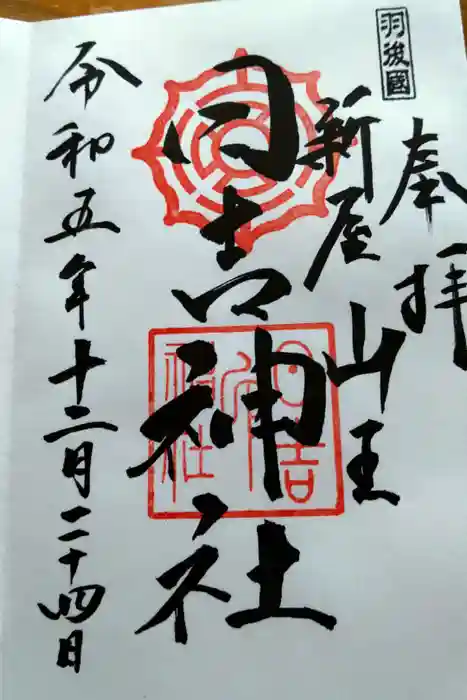 羽後國
奉拝
新屋山王
日吉神社
日吉神社
令和五年十二月二十四日